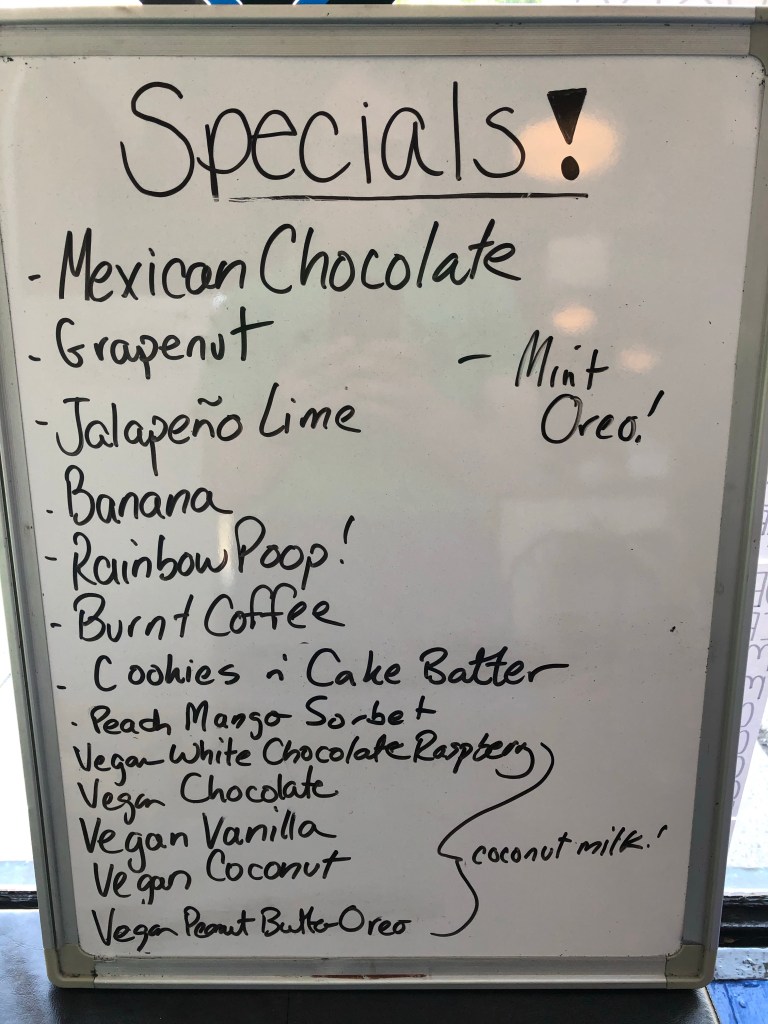 Specials!
- Mexican Chocolate
- Grapenut
- Mint
Oreo!
- Jalapeño Lime
. Banana
- Rainbow Poop!
- Burnt Coffee
- Cookies n' Cake Batter
. Peach Mango Sorbet
Vegan White Chocolate Raspberry
Vegan Chocolate
Vegan Vanilla
coconut milk!
Vegan Coconut
Vegan Peanut Butter Oreo